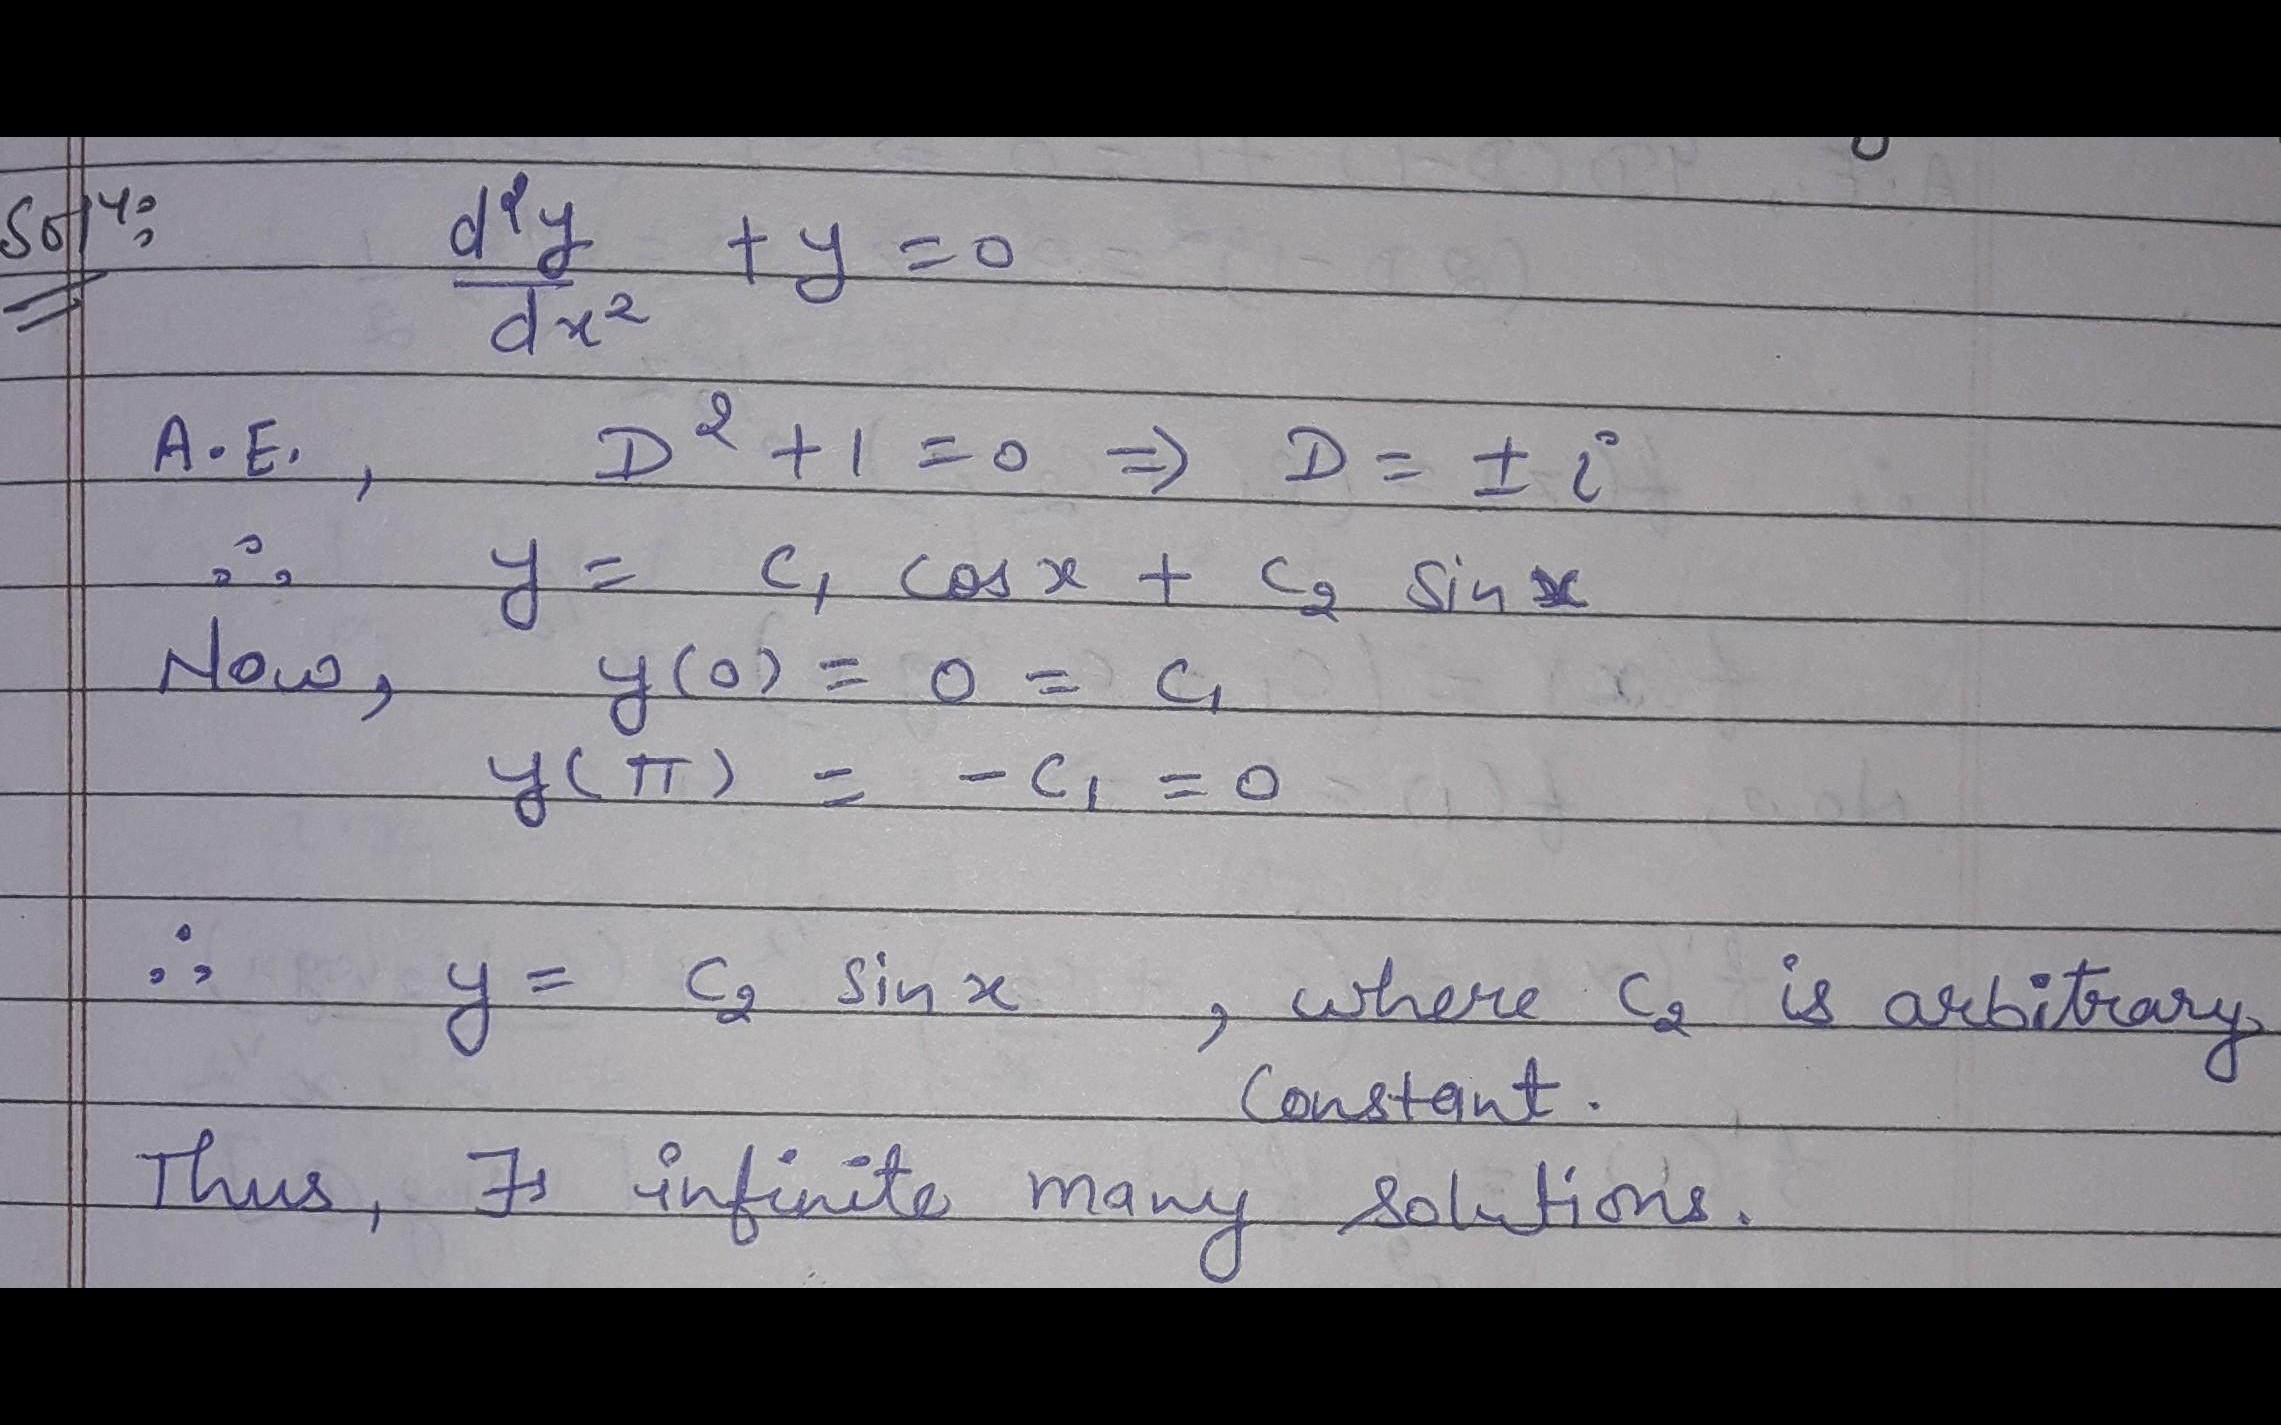 Solⁿ: d²y/dx² + y = 0
A.E., D² + 1 = 0 ⇒ D = ± i
∴ y = c₁ cos x + c₂ sin x
Now, y(0) = 0 = c₁
y(π) = -c₁ = 0
∴ y = c₂ sin x , where c₂ is arbitrary
Constant.
Thus, ∃ infinite many solutions.